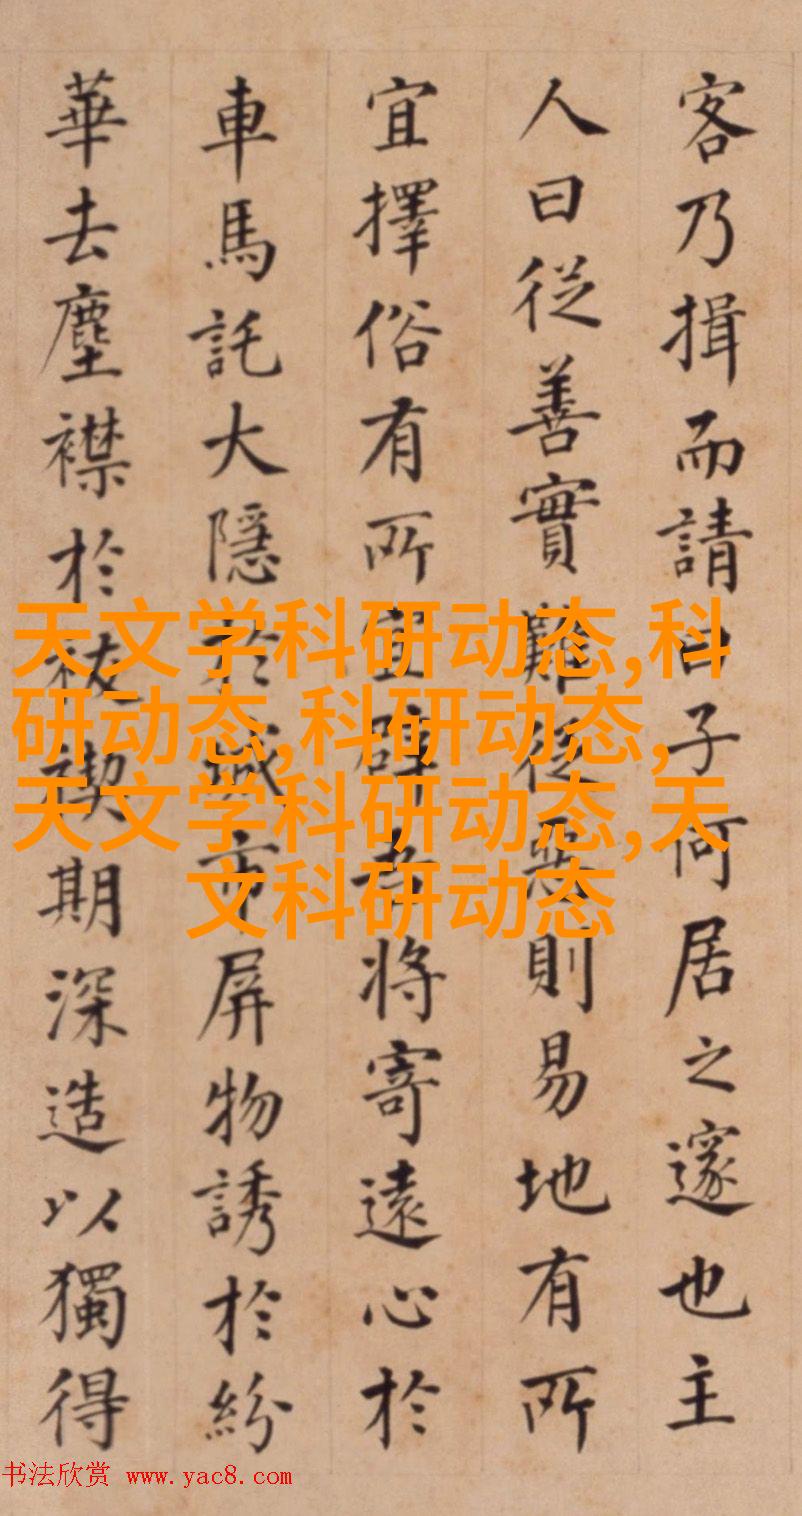 客乃揖而請曰子何居之邃也主
人曰従善實難従惡則易地有所
宜擇俗有所宜辟吾将寄遠心於
車馬託大隱於城市屏物誘於紛
華去塵襟於祓禊期深造以獨得
天文学科研动态,科
研动态,科研动态,
天文学科研动态,天
文科研动态
书法欣赏 www.yac8.com